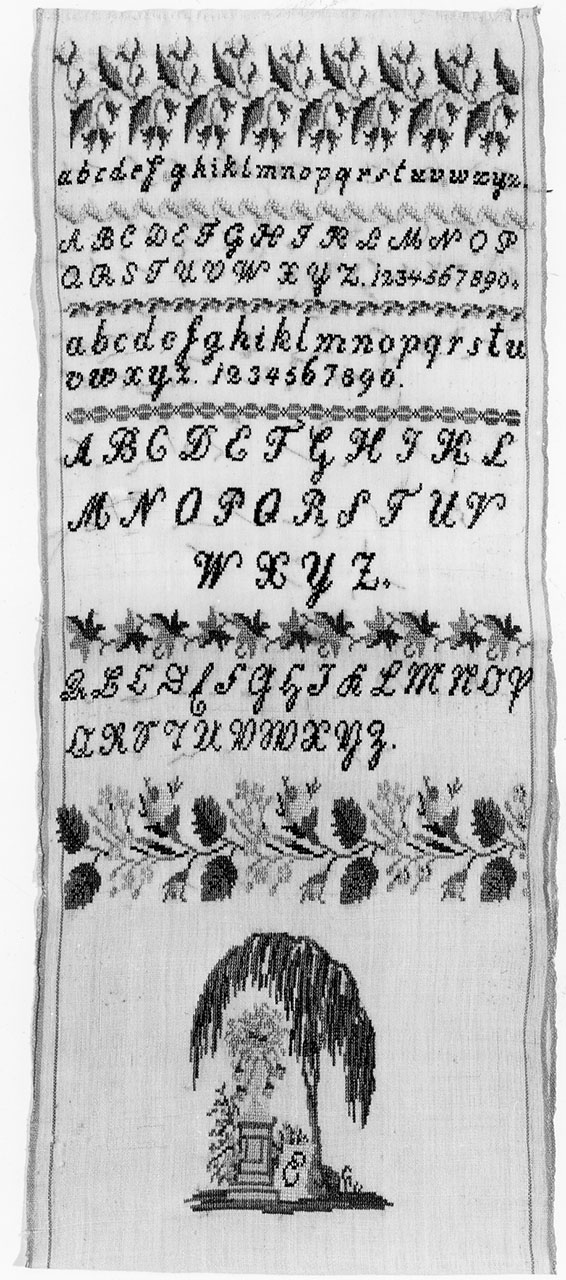 abcdefghiklmnopqrstuvwxyz.
ABCDEFGHIKLMNOP
QRSTUVWXYZ.1234567890.
abcdefghiklmnopqrstu
vwxyz. 1234567890.
ABCDEFGHIKL
MNOPQRSTUV
WXYZ.
ABCDEFGHIKLMNOP
QRSTUVWXYZ.
E